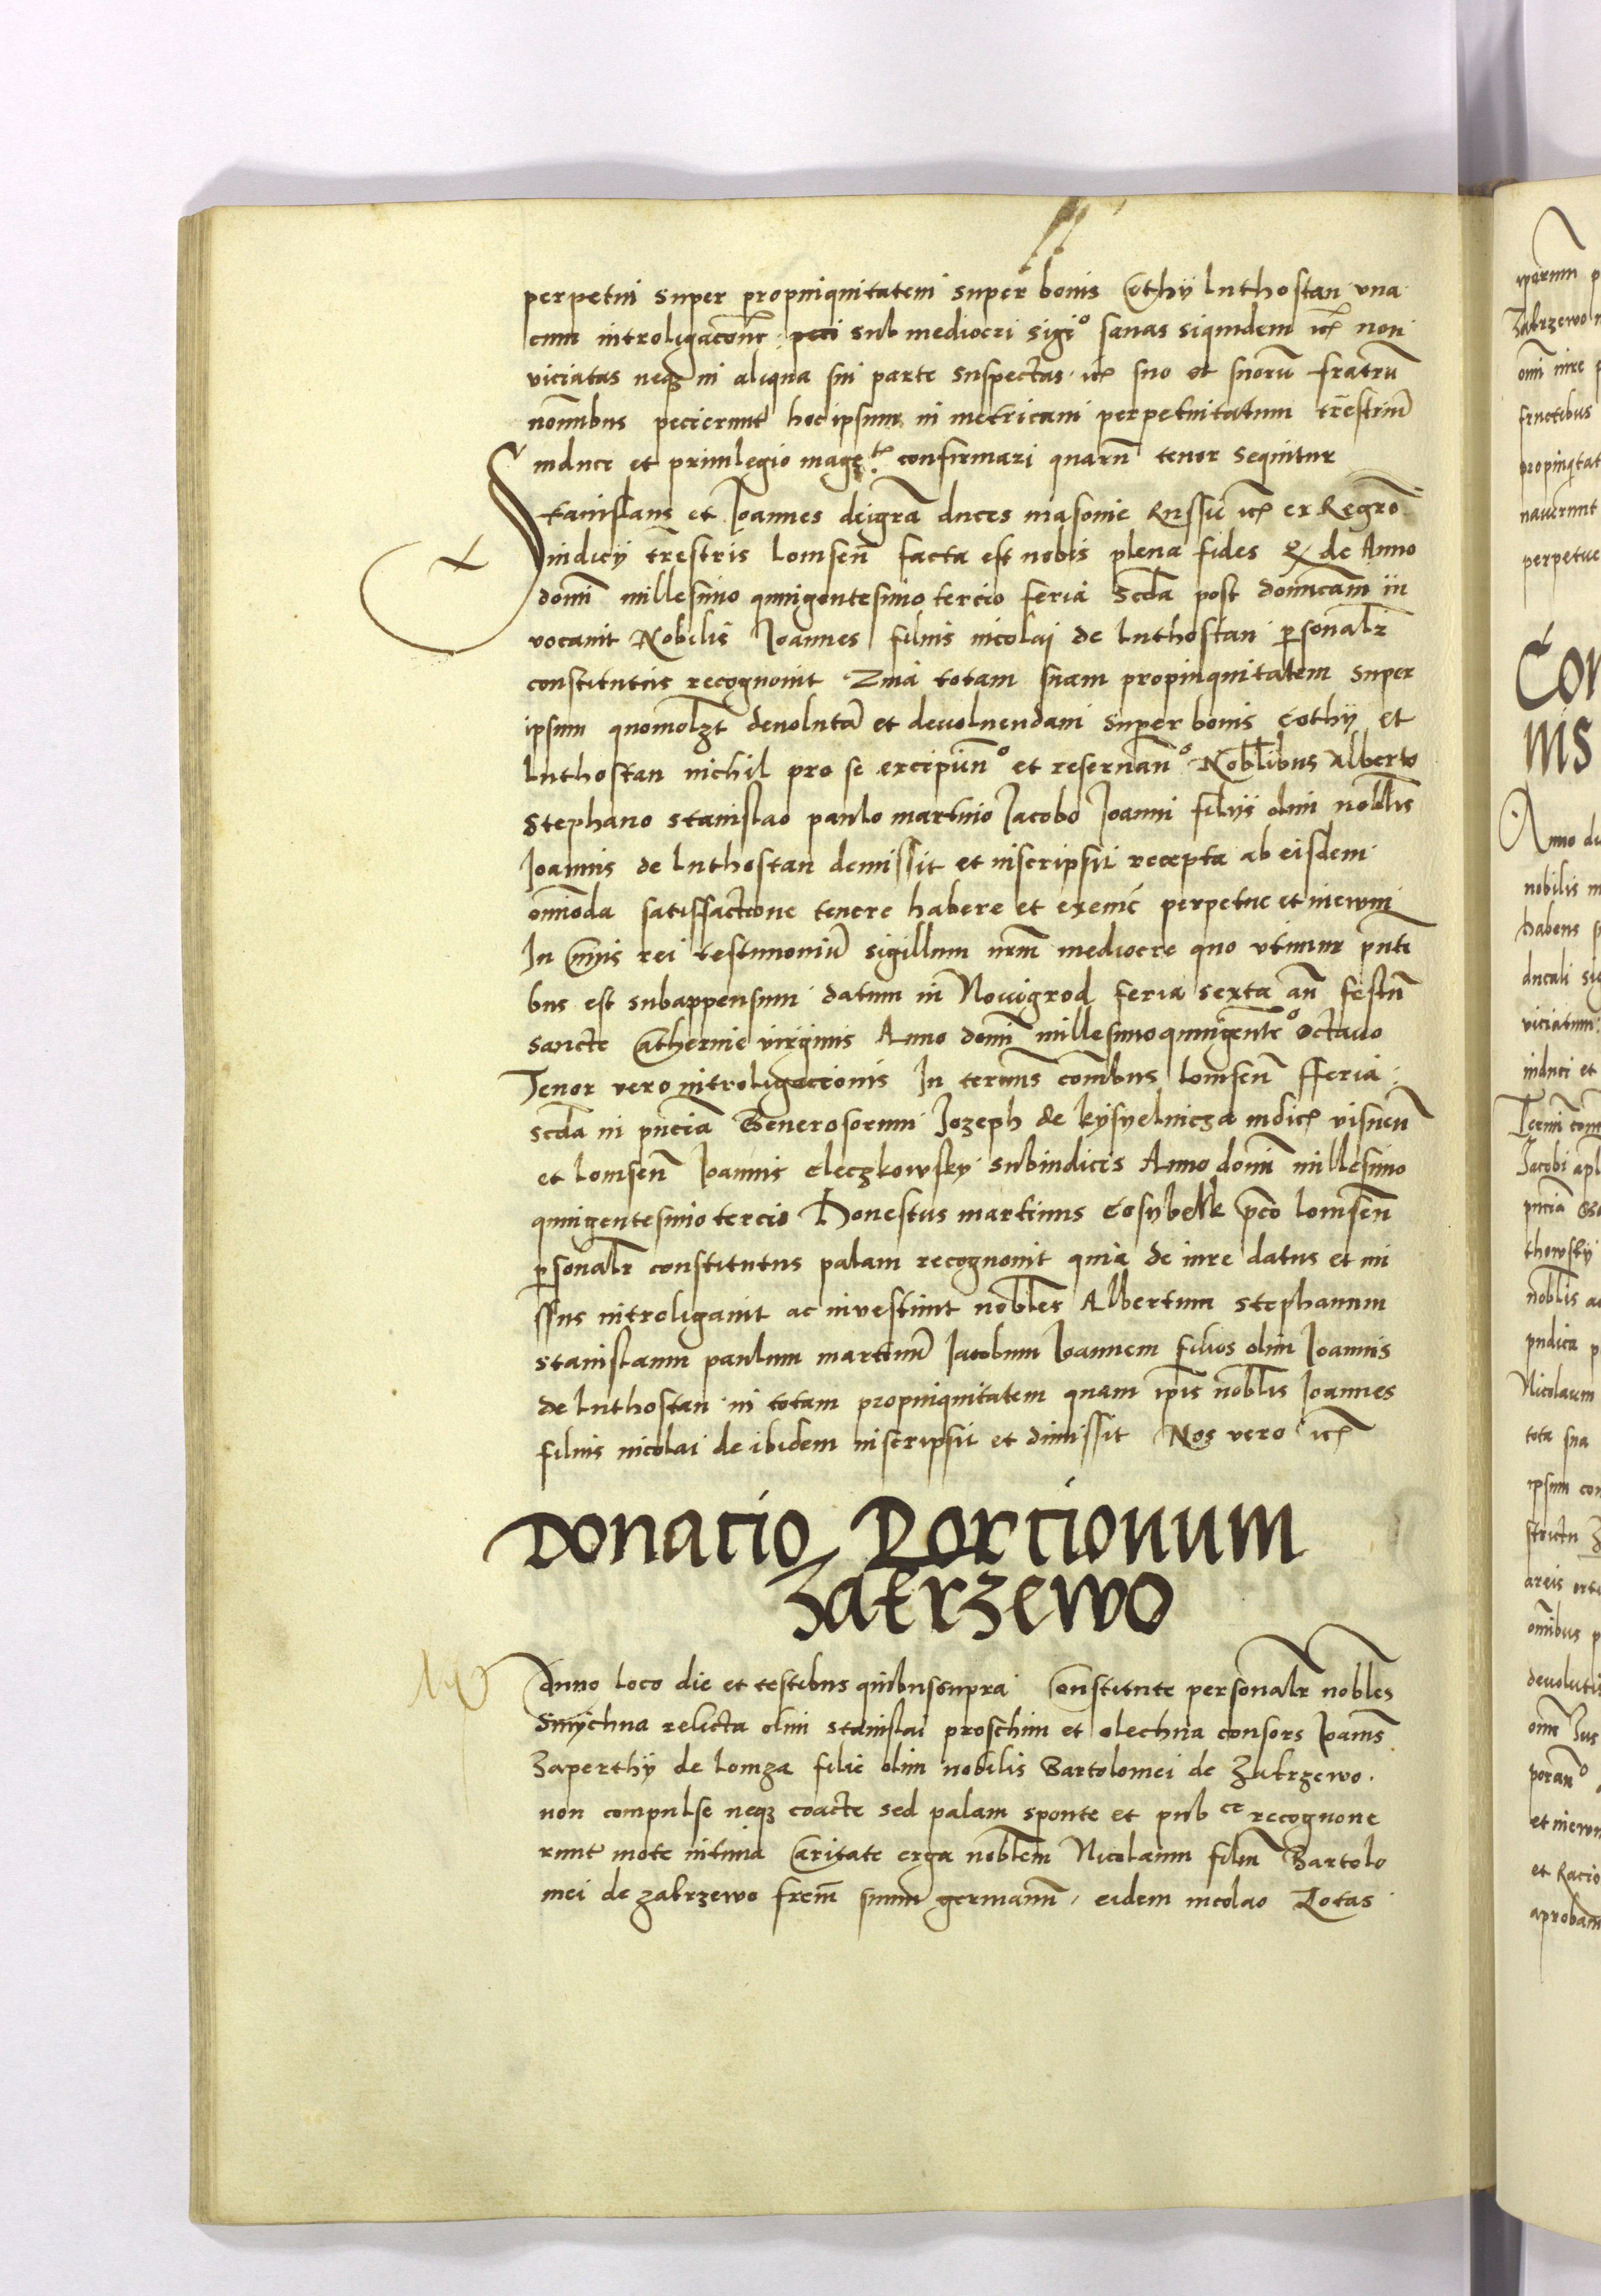 perpetui super propinquitatem super bonis Cothy luthostan vna
cum introligacōne peti sub mediocri sigio sanas siquidem etc non
viciatas neqȝ in aliqua sui parte suspectas etc suo et suorū fratrū
nomībus pecierunt hoc ipsum in metricam perpetuitatum trēstriū
induci et priuilegio confirmari quarū tenor sequitur
Stanislaus et Joannes dei grā duces masouie Russie etc ex Regrō
iudicij trēstris lomsen̄ facta est nobis plena fides de Anno
domī millesimo quingentesimo tercio feria Scdā post domīcam in
vocauit Nobilis Joannes filius nicolai de luthostan ꝑsonalr̄
constitutus recognouit qina totam suam propinquitatem super
ipsum quomolȝt deuolutā et deuoluendam super bonis cothy et
luthostan nichil pro se excipiēno et reseruāno Noblibus Alberto
Stephano stanislao paulo martino Jacobo Joanni filijs olim nobl̄is
Joannis de luthostan demissit et inscripsit recepta ab eisdem
omīoda satisffactione tenere habere et perpetue et in ewm
In Cuius rei testimoniū sigillum nrm̄ mediocre quo vtimur pn̄ti
bus est subappensum datum in Nouigrod feria sexta an̄ festū
sancte Catherine virginis Anno domī millesimo quingenteo octauo
Tenor vero introligacionis In termīs com̄ibus lomsen̄ fferia
scdā in pn̄cia Generosorum Jozeph de kysyelnicza iudic̄ visnen̄
et lomsen̄ Joannis cleczkowsky subiudicis Anno domī millesimo
quingentesimo tercio Honestus martinus cosybelk pco lomsen̄
ꝑsonalr̄ constitutus palam recognouit quia de iure datus et mi
ssus introligauit ac inuestiuit nobles Albertum Stephanum
stanislaum paulum martinū Jacobum Joannem filios olim Joannis
de luthostan in totam propinquitatem quam ip̄is nobl̄is Joannes
filius nicolai de ibidem inscripsit et dimissit Nos vero etc
Donacio Porcionum
Zakrzewo
Anno loco die et testibus quibus supra Constitute personalr̄ nobl̄es
Smychna relicta olim stanislai proschim et olechna consors Joanīs
Zaperthy de lomza filie olim nobilis Bartolomei de Zakrzewo.
non compulse neqȝ coacte sed palam sponte et pub ce recognoue
runt mote intima Caritate erga noblem Nicolaum filiū Bartolo
mei de zakrzewo frem̄ suum germanū, eidem nicolao Totas